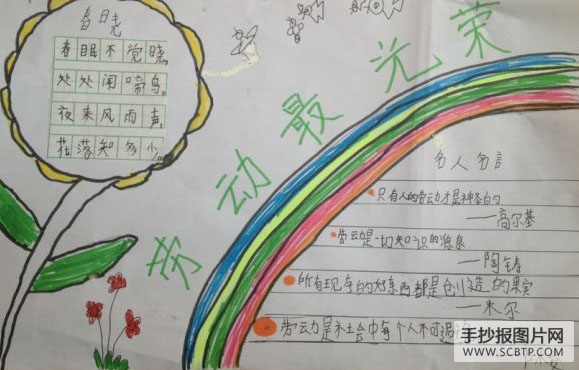 春晓
春眠不觉晓,
处处闻啼鸟。
夜来风雨声,
花落知多少。
劳动最光荣
名人名言
只有人的劳动才是神圣的
——高尔基
劳动是一切知识的源泉
——陶铸
所有现存的好东西都是创造的果实
——米尔
劳动是社会中每个人不可
手抄报图片网
WWW.SCBTP.COM